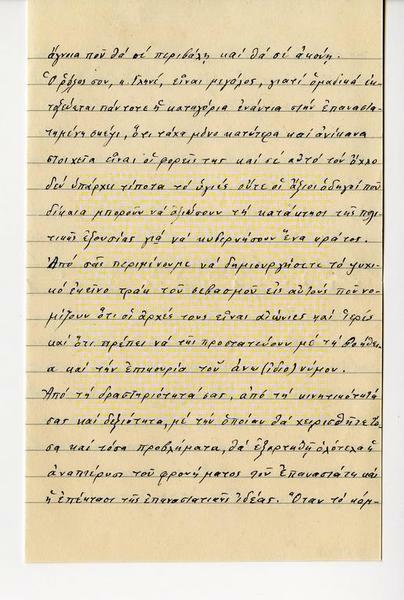 ἄγνια ποῦ θά σέ περιβάλη καί θά σέ ἀκούη.
Ὁ ρόλος σου, κ. Γληνέ, εἶναι μεγάλος, γιατί ὁμαδικά ἐκ-
τοξεύεται πάντοτε ἡ κατηγορία ἐνάντια στήν ἐπαναστα-
τημένη σκέψι, ὅτι τάχα μόνο κατώτερα καί ἀνίκανα
στοιχεῖα εἶναι οἱ φορεῖς της καί σέ αὐτό τόν ὄχλο
δέν ὑπάρχει τίποτα τό ὑγιές οὔτε οἱ ἄξιοι ὁδηγοί πού
δίκαια μποροῦν νά ἀξιώσουν τή κατάκτησι τῆς πολι-
τικῆς ἐξουσίας γιά νά κυβερνήσουν ἕνα κράτος.
Ἀπό σᾶς περιμένουμε νά δημιουργήσετε τό ψυχι-
κό ἐκεῖνο τράκ τοῦ σεβασμοῦ εἰς αὐτούς πού νο-
μίζουν ὅτι οἱ ἀρχές τους εἶναι αἰώνιες καί ἱερές
καί ὅτι πρέπει νά τίς προστατεύουν μέ τή βοήθει-
α καί τήν ἐπικουρία τοῦ ἀνω(ιδιο)νύμου.
Ἀπό τή δραστηριότητά σας, ἀπό τή κινητικότητά
σας καί δεξιότητα, μέ τήν ὁποίαν θά χειρισθῆτε τό-
σα καί τόσα προβλήματα, θά ἐξαρτηθῆ ὁλότελα ἡ
ἀναπτέρωσι τοῦ φρονήματος τοῦ ἐπαναστάτη καί
ἡ ἐπέκτασι τῆς ἐπαναστατικῆς ἰδέας. Ὅταν τό κόμ-